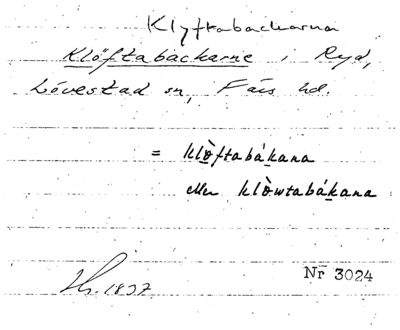 Klyftabackarna
Klöftabackarne i Ryd,
Lövestad sn, Färs hd.
= klò̱ftabáḵana
eller klò̱wtabáḵana
1897
Nr 3024